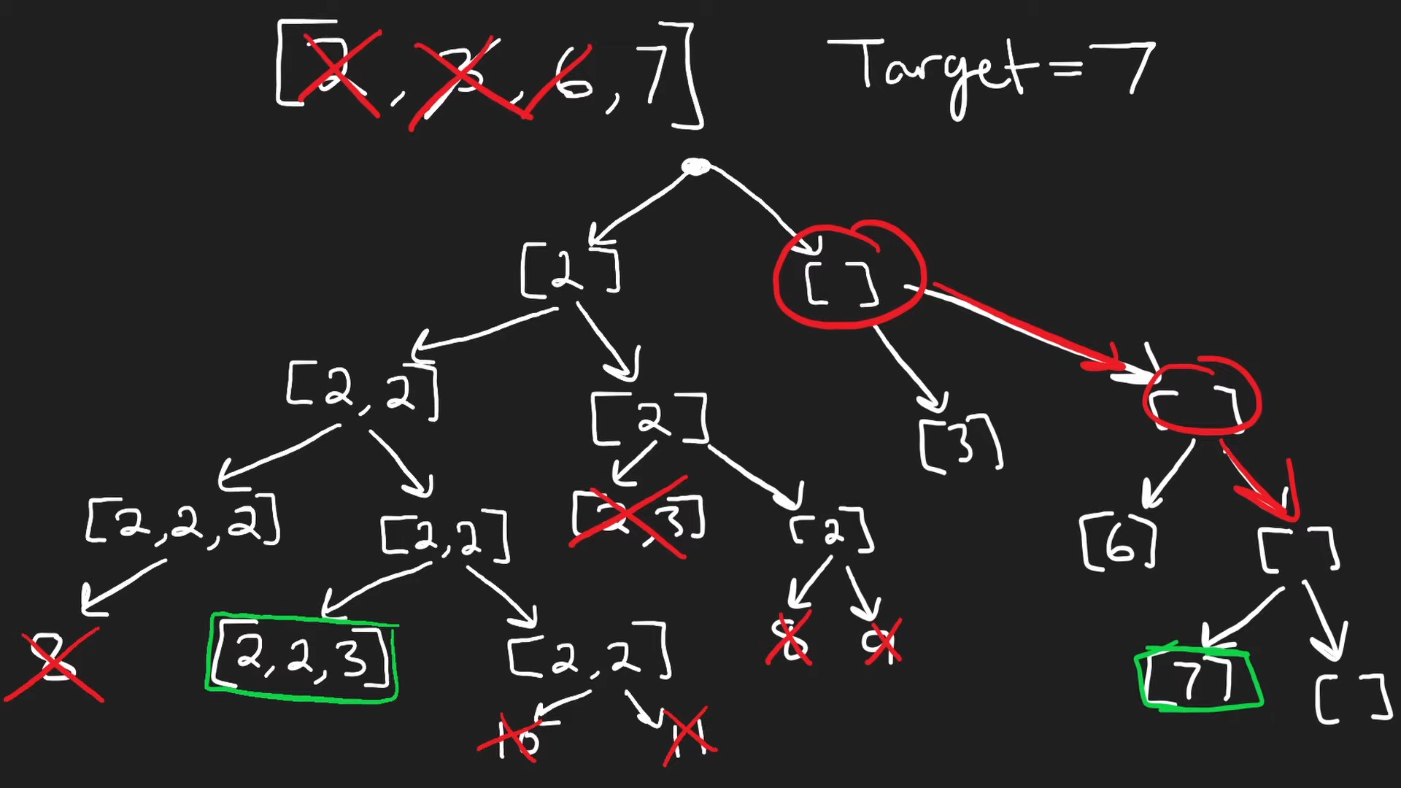 [2, 3, 6, 7] Target = 7
[2] []
[2, 2] [2] [3] []
[2, 2, 2] [2, 2] [2, 3] [2] [6] []
8 [2, 2, 3] [2, 2] 8 9 [7] []
10 11